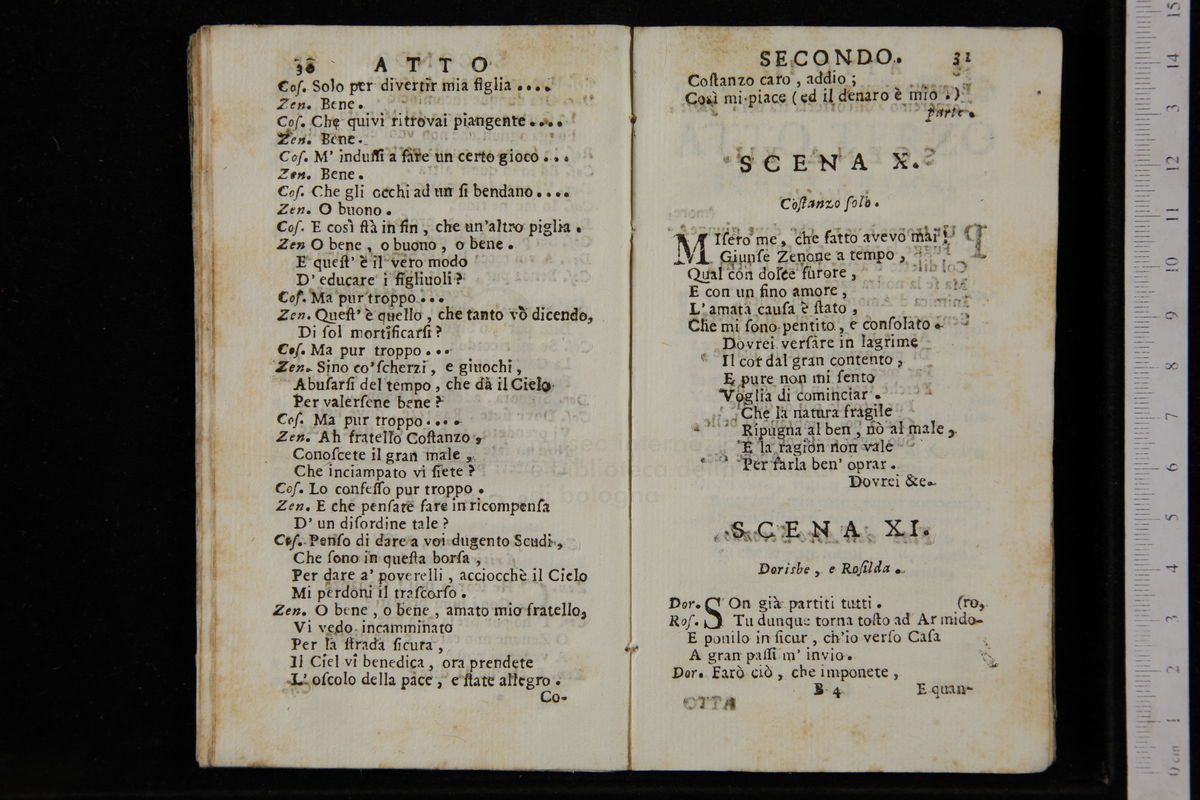 30 ATTO
Coſ. Solo per divertir mia figlia ....
Zen. Bene.
Coſ. Che quivi ritrovai piangente ....
Zen. Bene.
Coſ. M' induſſi a fare un certo gioco ...
Zen. Bene.
Coſ. Che gli occhi ad un ſi bendano ....
Zen. O buono.
Coſ. E così ſtà in fin, che un'altro piglia.
Zen O bene, o buono, o bene.
E queſt' è il vero modo
D' educare i figliuoli?
Coſ. Ma pur troppo ...
Zen. Queſt' è quello, che tanto vò dicendo,
Di ſol mortificarſi?
Coſ. Ma pur troppo ...
Zen. Sino co'ſcherzi, e giuochi,
Abuſarſi del tempo, che dà il Cielo
Per valerſene bene?
Coſ. Ma pur troppo ....
Zen. Ah fratello Coſtanzo,
Conoſcete il gran male,
Che inciampato vi ſiete?
Coſ. Lo confeſſo pur troppo.
Zen. E che penſate fare in ricompenſa
D' un diſordine tale?
Coſ. Penſo di dare a voi dugento Scudi,
Che ſono in queſta borſa,
Per dare a' poverelli, acciocchè il Cielo
Mi perdoni il traſcorſo.
Zen. O bene, o bene, amato mio fratello,
Vi vedo incamminato
Per la ſtrada ſicura,
Il Ciel vi benedica, ora prendete
L' oſcolo della pace, e ſtate allegro.
Co-
SECONDO. 31
Coſtanzo caro, addio;
Così mi piace (ed il denaro è mio.)
parte.
SCENA X.
Coſtanzo ſolo.
MIſero me, che fatto avevo mai!
Giunſe Zenone a tempo,
Qual con dolce furore,
E con un fino amore,
L' amata cauſa è ſtato,
Che mi ſono pentito, e conſolato.
Dovrei verſare in lagrime
Il cor dal gran contento,
E pure non mi ſento
Voglia di cominciar.
Che la natura fragile
Ripugna al ben, nò al male,
E la ragion non vale
Per farla ben' oprar.
Dovrei &c.
SCENA XI.
Dorisbe, e Roſilda.
Dor. SOn già partiti tutti. (ro,
Roſ. Tu dunque torna toſto ad Armido-
E ponilo in ſicur, ch'io verſo Caſa
A gran paſſi m' invio.
Dor. Farò ciò, che imponete,
B 4 E quan-